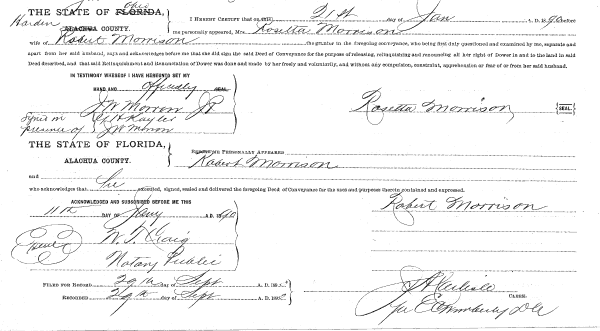 THE STATE OF FLORIDA, Ohio
Harden
ALACHUA COUNTY.
I HEREBY CERTIFY that on this 21st day of Jan A. D. 1890 before
me personally appeared, Mrs. Rosetta Morrison
wife of Robert Morrison the grantor in the foregoing conveyance, who being first duly questioned and examined by me, separate and
apart from her said husband, says and acknowledges before me that she did sign the said Deed of Conveyance for the purpose of releasing, relinquishing and renouncing all her right of Dower in and to the land in said
Deed described, and that said Relinquishment and Renunciation of Dower was done and made to her freely and voluntarily, and without any compulsion, constraint, apprehension or fear of or from her said husband.
IN TESTIMONY WHEREOF I HAVE HEREUNTO SET MY
HAND AND officially SEAL.
J W Morrow Jr
Rosetta Morrison SEAL.
Signed in
presence of J W Morrow
THE STATE OF FLORIDA,
ALACHUA COUNTY.
PERSONALLY APPEARED
Robert Morrison
and
who acknowledges that he executed, signed, sealed and delivered the foregoing Deed of Conveyance for the uses and purposes therein contained and expressed.
ACKNOWLEDGED AND SUBSCRIBED BEFORE ME THIS
11th DAY OF Jany A. D. 1890
Robert Morrison
W. T. Craig
Notary Public
FILED FOR RECORD 29th day of Sept A. D. 189
RECORDED 29th day of Sept A. D. 189
CLERK.
per E C Wimberly D C